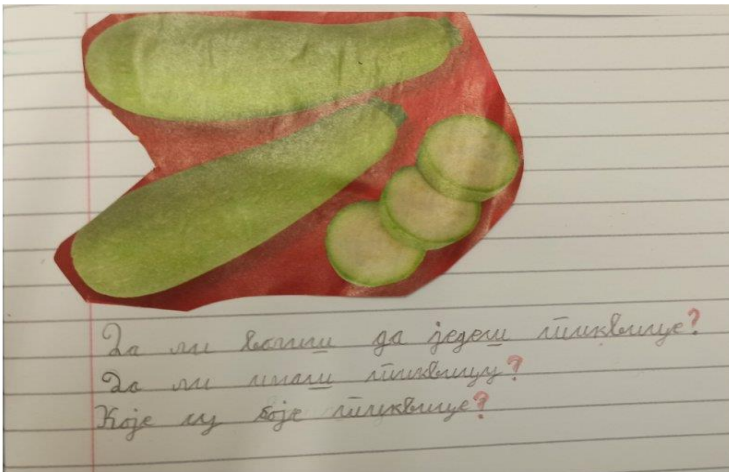 Да ли волиш да једеш тиквице?
Да ли имаш тиквицу?
Које су боје тиквице?